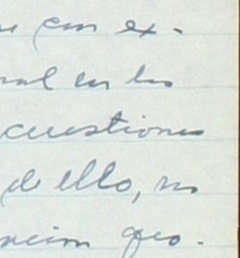 se con ex-
ral en los
cuestiones
de ello, no
ción geo-